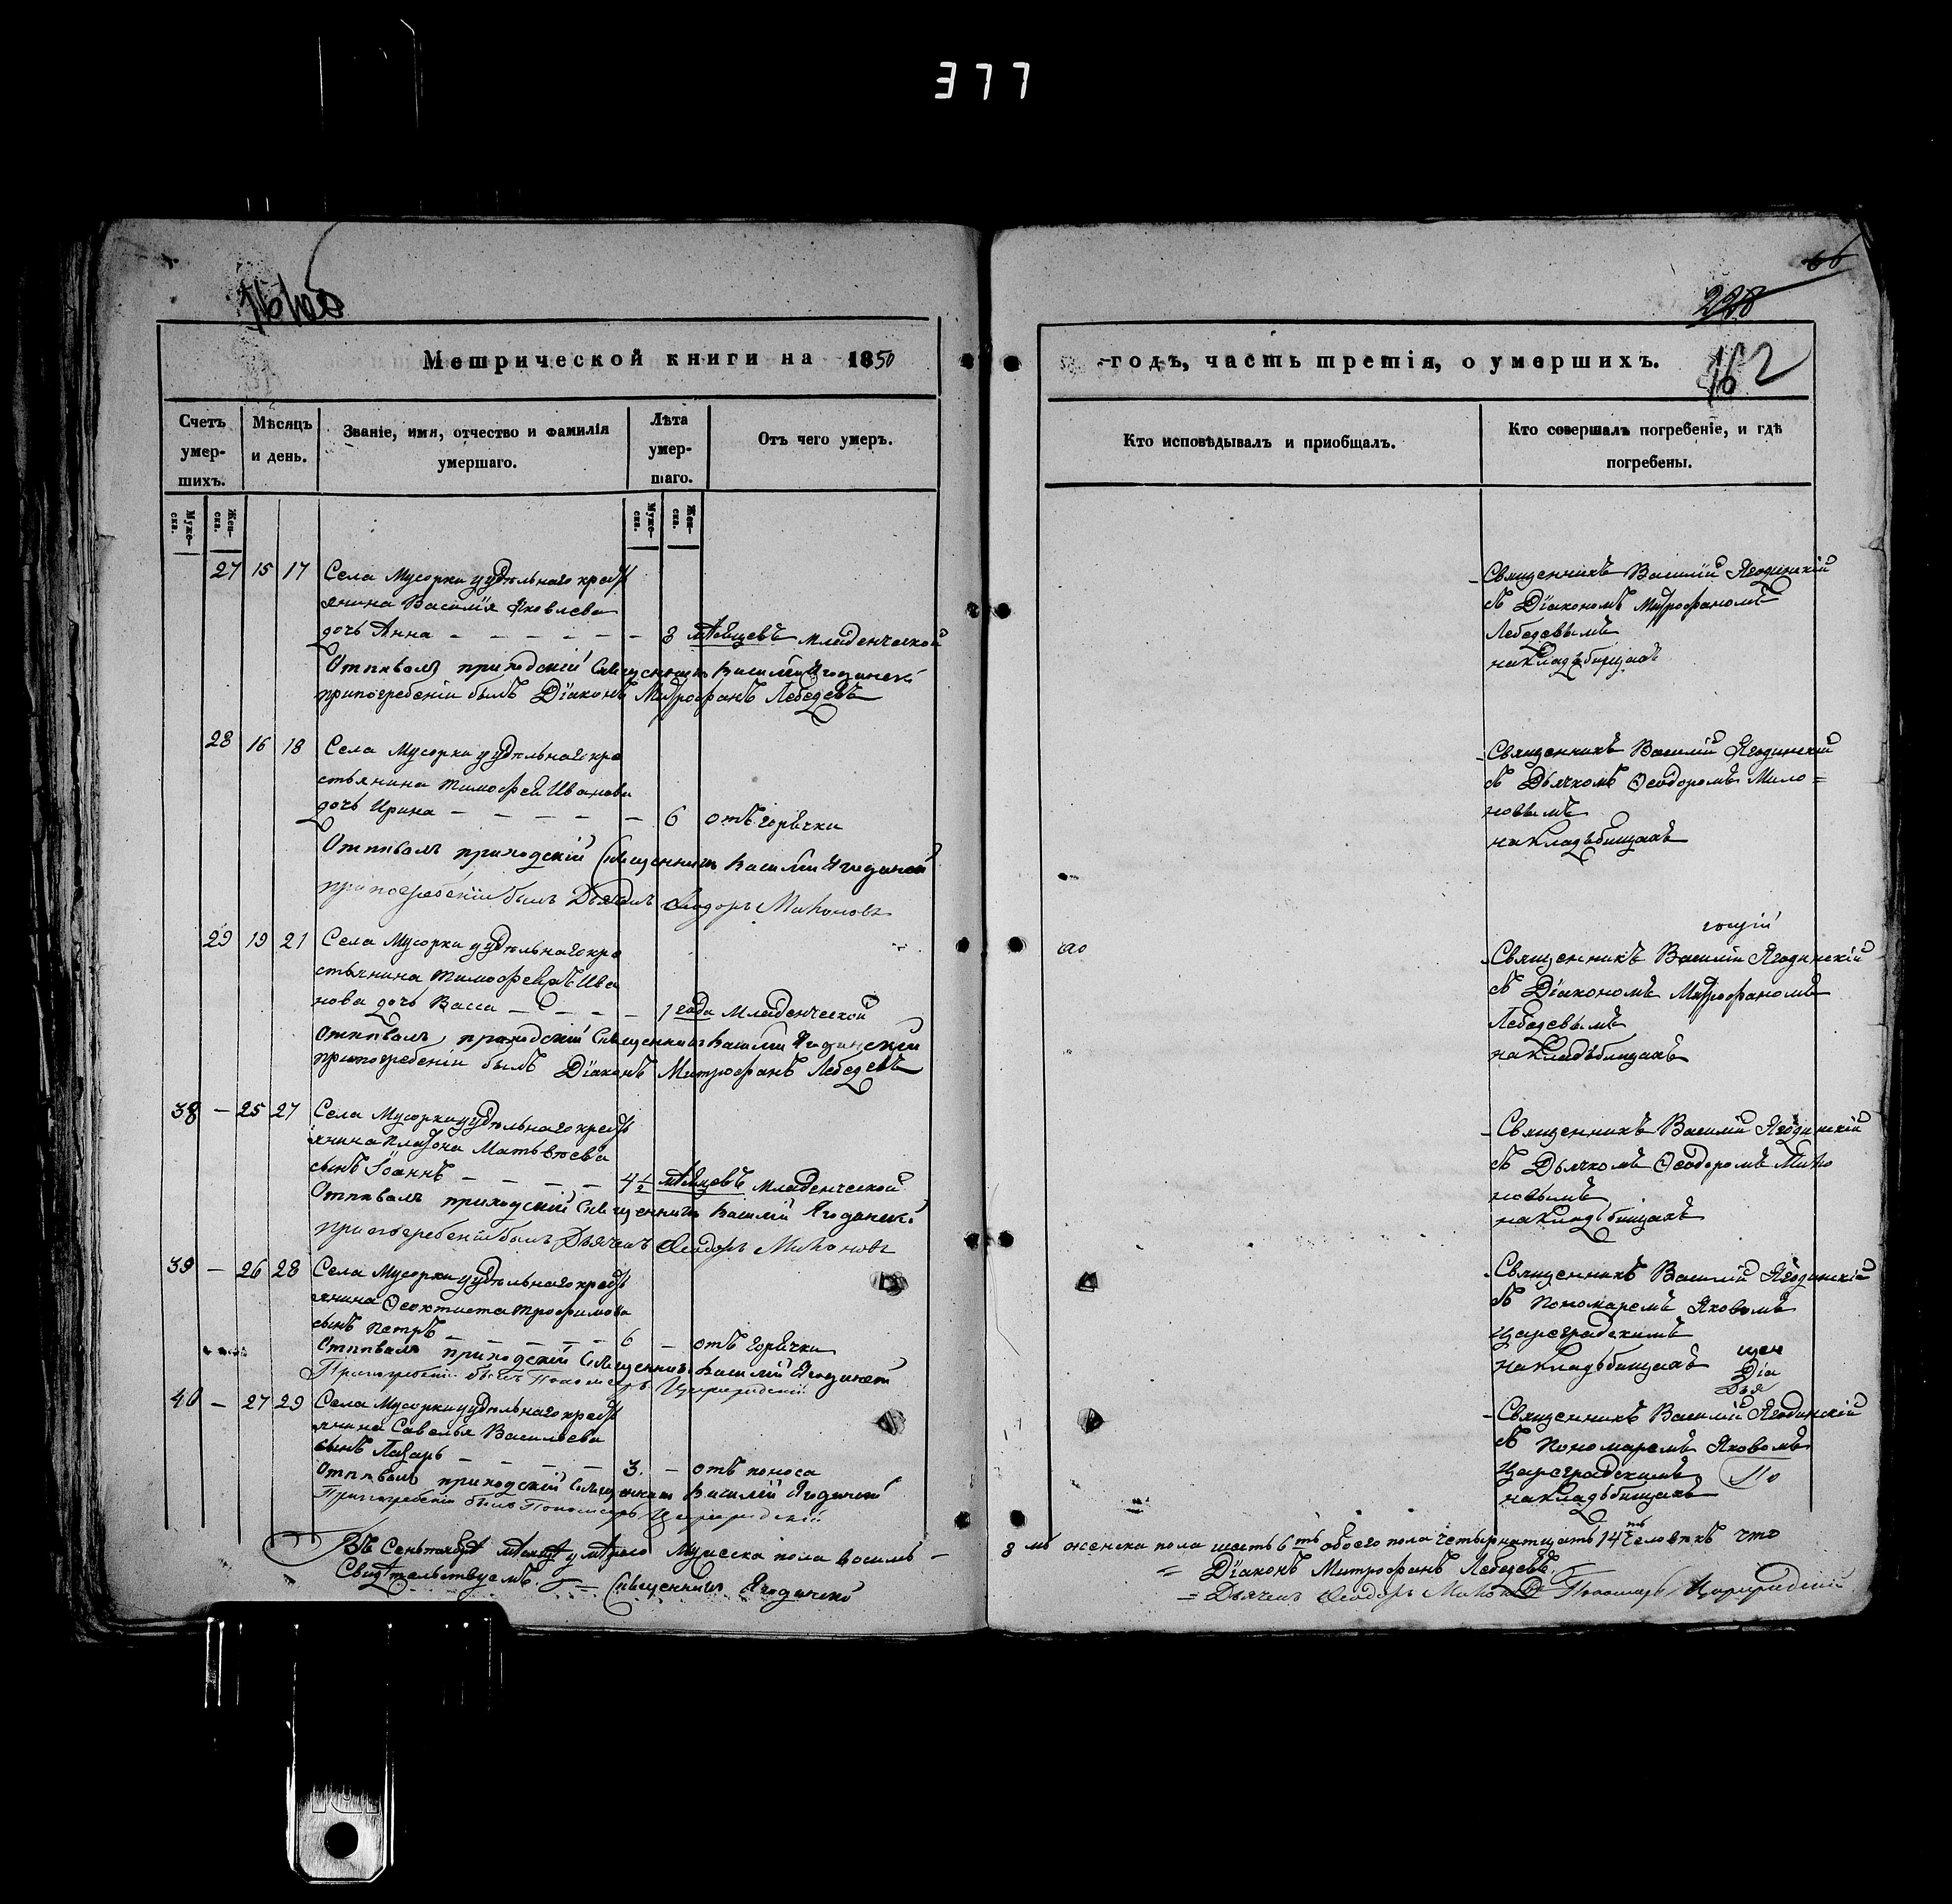 377
66
228
162
Метрической книги на 1850
-годъ, часть третія, о умершихъ.
Счетъ умер-шихъ.
Мѣсяцъ и день.
Званіе, имя, отчество и фамилія умершаго.
Лѣта умер-шаго.
Отъ чего умеръ.
Кто исповѣдывалъ и пріобщалъ.
Кто совершалъ погребеніе, и гдѣ погребены.
Муже-ска.
Жен-ска.
Муже-ска.
Жен-ска.
27 15 17 Села Мусорки удѣльнаго крест
янина Василія Яковлева
дочь Анна - - - - - - 8 мѣсяцевъ младенческой
Отпѣвалъ приходскій Священникъ Василій Ягодинскі
припогребеніи былъ Діаконъ Митрофанъ Лебедевъ
Священникъ Василій Ягодинскій
съ Діакономъ Митрофаномъ
Лебедевымъ
накладбищахъ
28 16 18 Села Мусорки удѣльнаго кре
стьянина Тимофей Иванова
дочь Ирина - - - - - 6 отъ горячки
Отпѣвалъ приходскій Священникъ Василій Ягодинской
припогребеніи былъ Дьячекъ Ѳеодоръ Милоновъ
Священникъ Василій Ягодинскій
съ Дьячкомъ Ѳеодоромъ Мило=
новымъ
накладьбищахъ
29 19 21 Села Мусорки удѣльнаго кре
стьянина Тимофея Ива
нова дочь Васса - - - - 1 года младенческой
Отпѣвалъ приходскій Священникъ Василій Ягодинскій
припогребеніи былъ Діаконъ Митрофанъ Лебедевъ
ао
гощій
Священникъ Василій Ягодинскій
съ Діакономъ Митрофаномъ
Лебедевымъ
накладьбищахъ
38 - 25 27 Села Мусорки удѣльнаго крест
янина Платона Матьвѣева
сынъ Іоаннъ - - - - 4 1/2 мѣсяцовъ младенческой
Отпѣвалъ приходскій Священникъ Василій Ягодинскі
припогребеніи былъ Дьячекъ Ѳеодоръ Милоновъ
Священникъ Василій Ягодинскій
съ Дьячкомъ Ѳеодоромъ Мило
новымъ
накладьбищахъ
39 - 26 28 Села Мусорки удѣльнаго крест
янина Ѳеоктиста Трофимова
сынъ Петръ - - - - - 6 - отъ горячки
Отпѣвалъ приходскій Священникъ Василій Ягодинской
Припогребеніи былъ Пономарь Цареградскій
Священникъ Василій Ягодинскій
съ Пономаремъ Яковомъ
Цареградскимъ
накладьбищахъ
щен
Діа
Дья
40 - 27 29 Села Мусорки удѣльнаго крест
янина Савелья Васильева
сынъ Лазарь - - - - - 3 - отъ поноса
Отпѣвалъ приходскій Священникъ Василій Ягодинской
Припогребеніи былъ Пономарь Цареградскій
Священникъ Василій Ягодинскій
съ Пономаремъ Яковомъ
Цареградскимъ
накладьбищахъ
По
Въ Сентябрѣ мѣсяцѣ умерло Мужеска пола восемь -
8 мь женска пола шесть 6ть обоего пола четырнатцать 14ть человѣкъ что
Свидѣтельствуемъ = Священникъ Ягодинской
= Діаконъ Митрофанъ Лебедевъ
= Дьячекъ Ѳеодоръ Милоновъ Пономарь Цареградскій